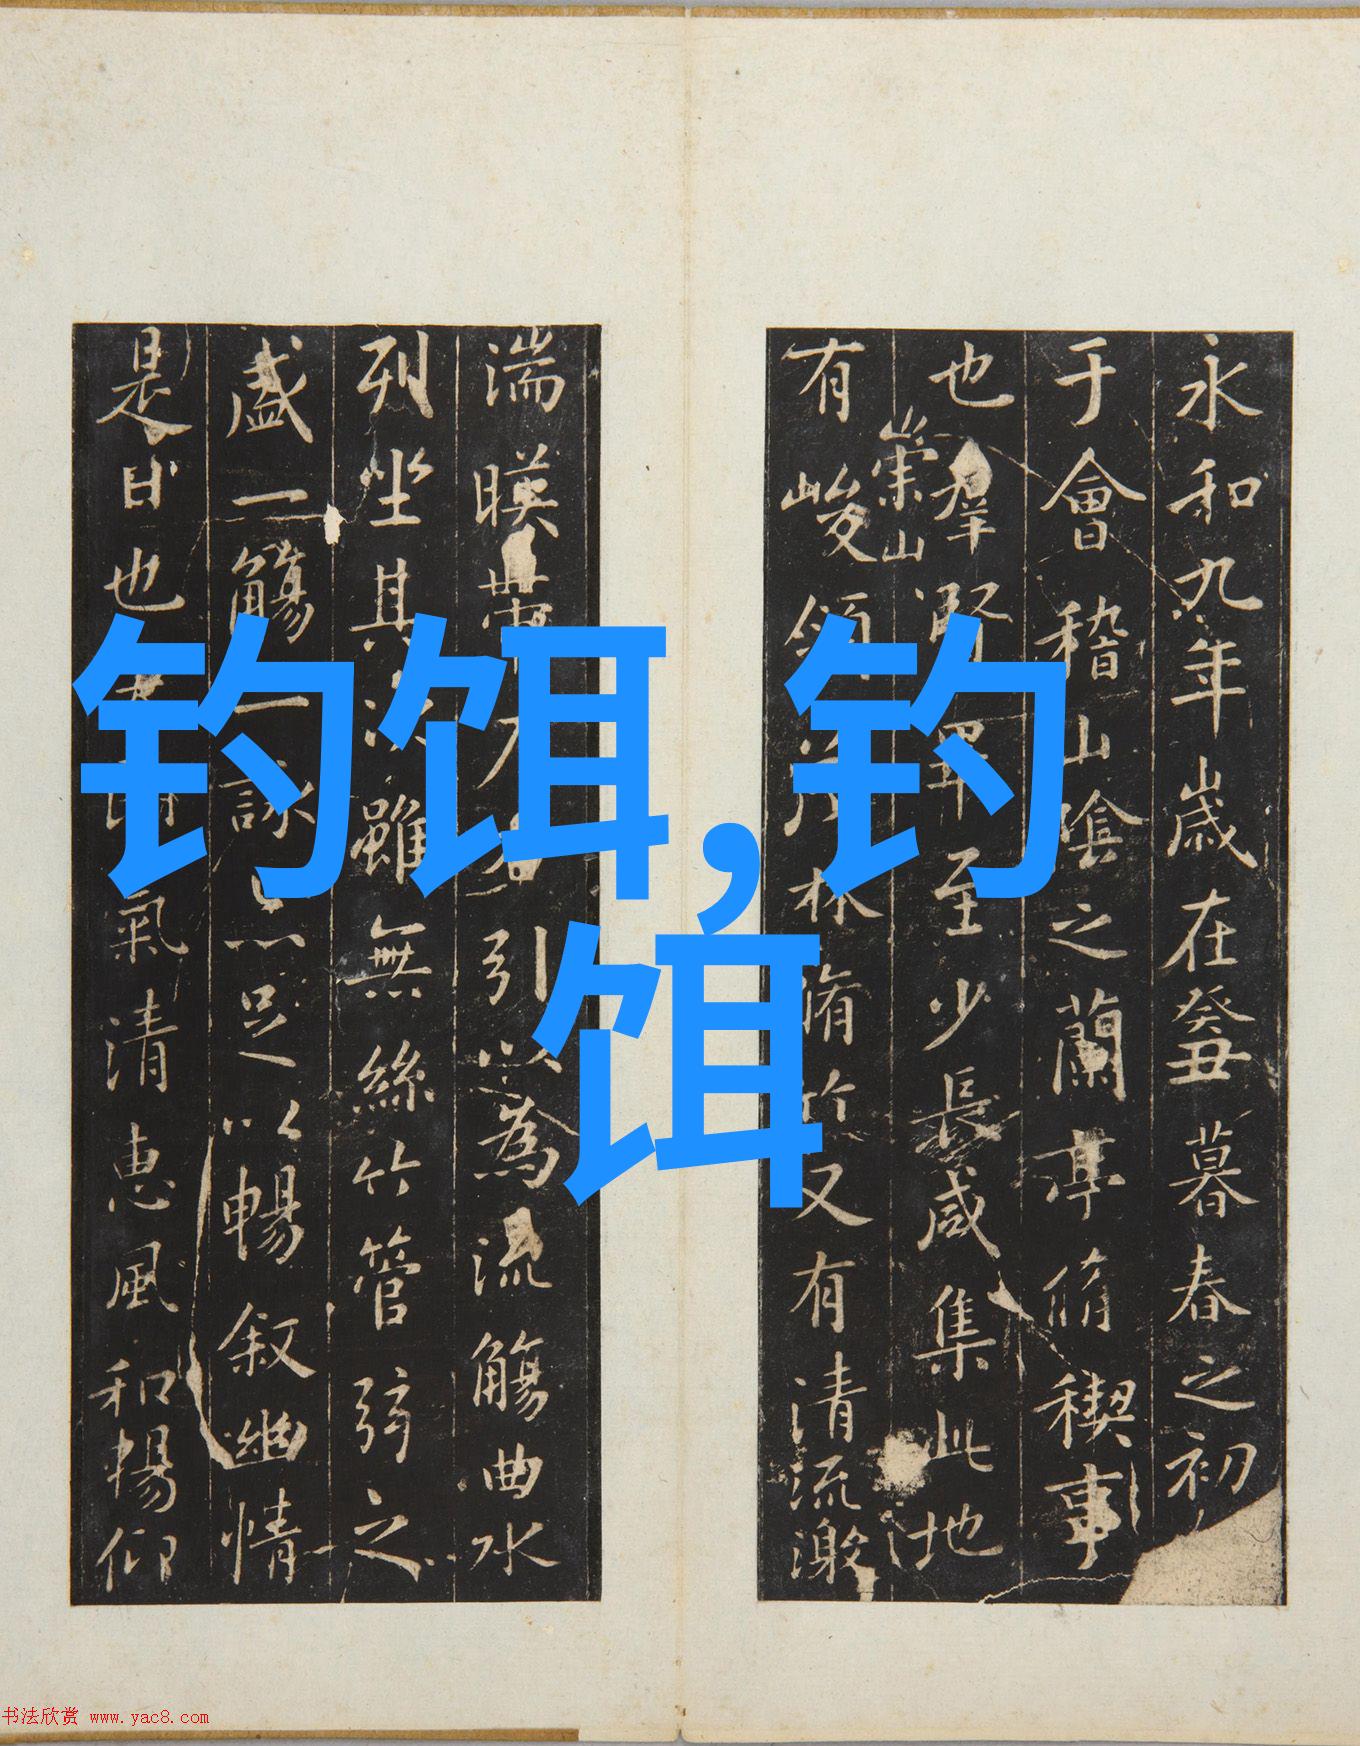 钓饵,钓
饵
永和九年歲在癸丑暮春之初
于會稽山陰之蘭亭脩禊事
也羣賢畢至少長咸集此地
崇山
有峻領茂林脩竹又有清流激
湍暎帶左右引以為流觴曲水
列坐其次雖無絲竹管弦之
盛一觴一詠亦足以暢叙幽情
是日也天朗氣清惠風和暢仰
书法欣赏 www.yac8.com